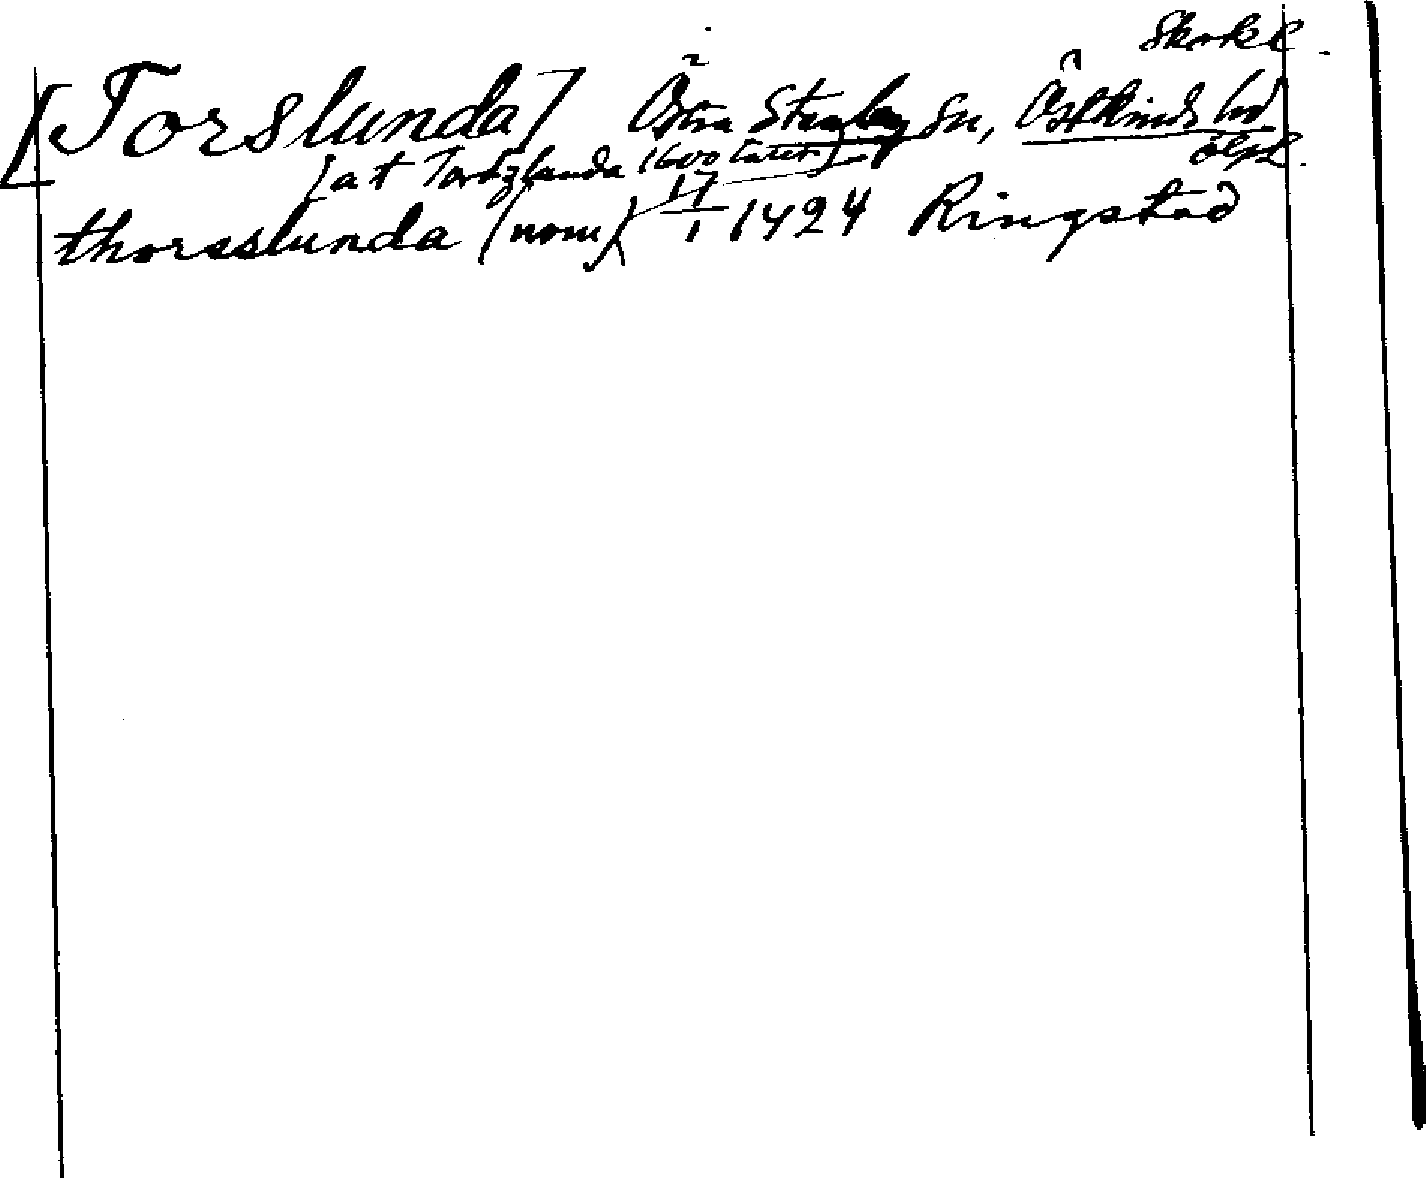 Skokl.
[Torslunda] Östra Stenby sn, Östkinds hd
[at Tordzlunda 1600 talet] ögl.
thorsslunda (nom) 17/1 1424 Ringstad